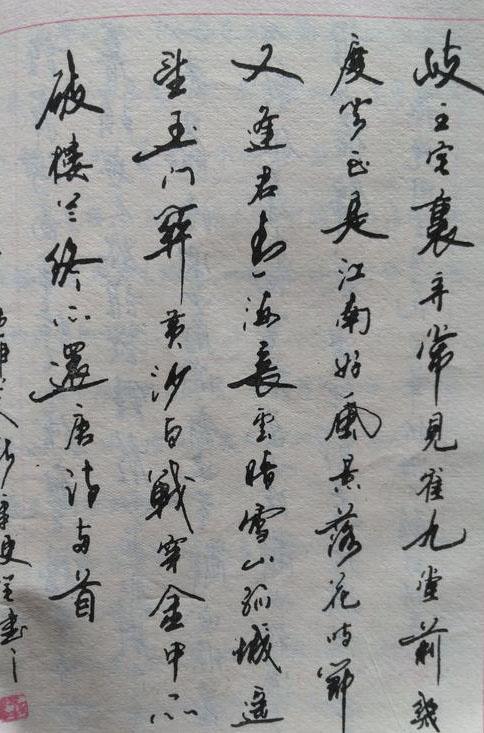 岐王宅裏尋常見崔九堂前幾
度聞正是江南好風景落花時節
又逢君青海長雲暗雪山孤城遥
望玉門關黄沙百戰穿金甲不
破樓兰終不還唐诗两首